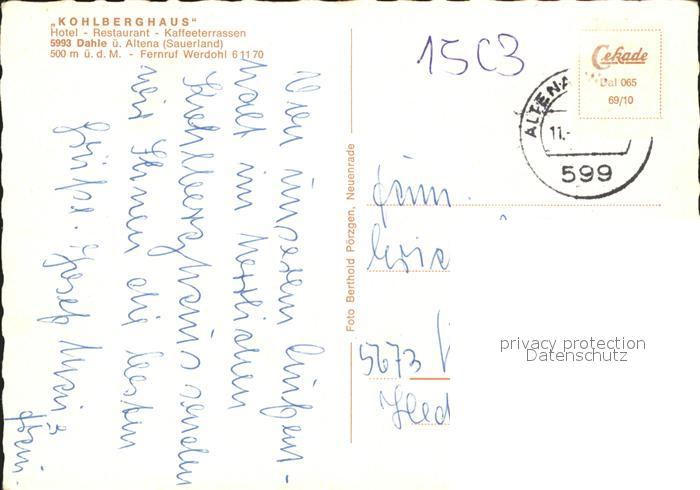 „KOHLBERGHAUS“
Hotel - Restaurant - Kaffeeterrassen
5993 Dahle ü. Altena (Sauerland)
500 m ü. d. M. - Fernruf Werdohl 6 11 70
Von unserem Aufent-
halt im herrlichen
Kohlberghaus senden
wir Ihnen die besten
Grüße.
Foto Berthold Pörzgen, Neuenrade
15C3
Cekade
Dal 065
69/10
ALTENA
11.-
599
Fam.
5673
privacy protection
Datenschutz